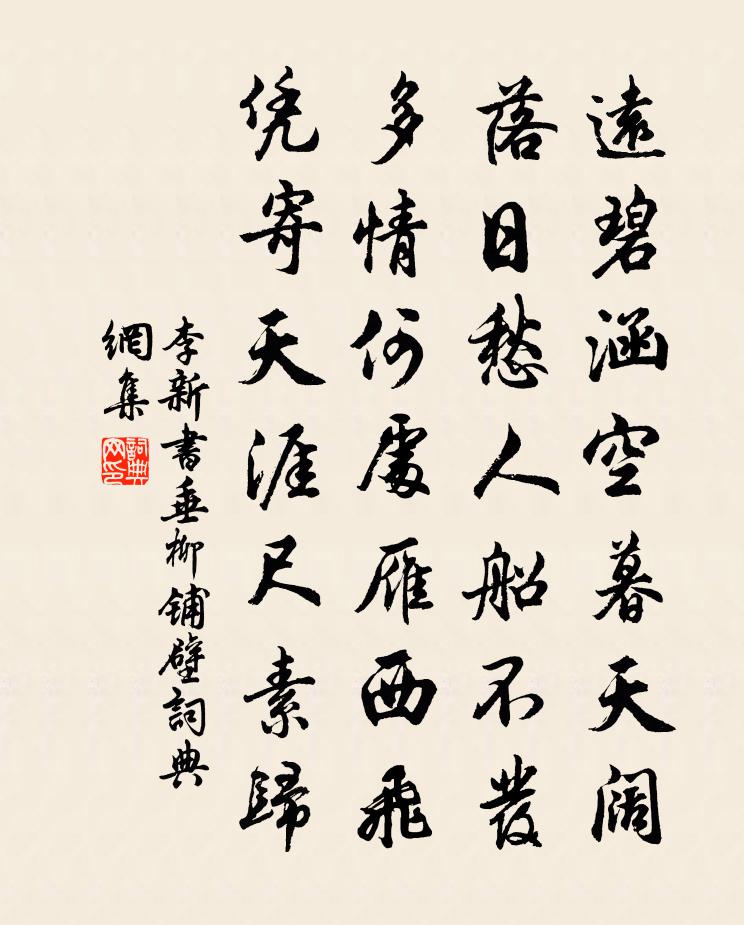 遠碧涵空暮天闊
落日愁人船不發
多情何處雁西飛
凭寄天涯尺素歸
李新書垂柳鋪壁詞典
網集
詞典網印